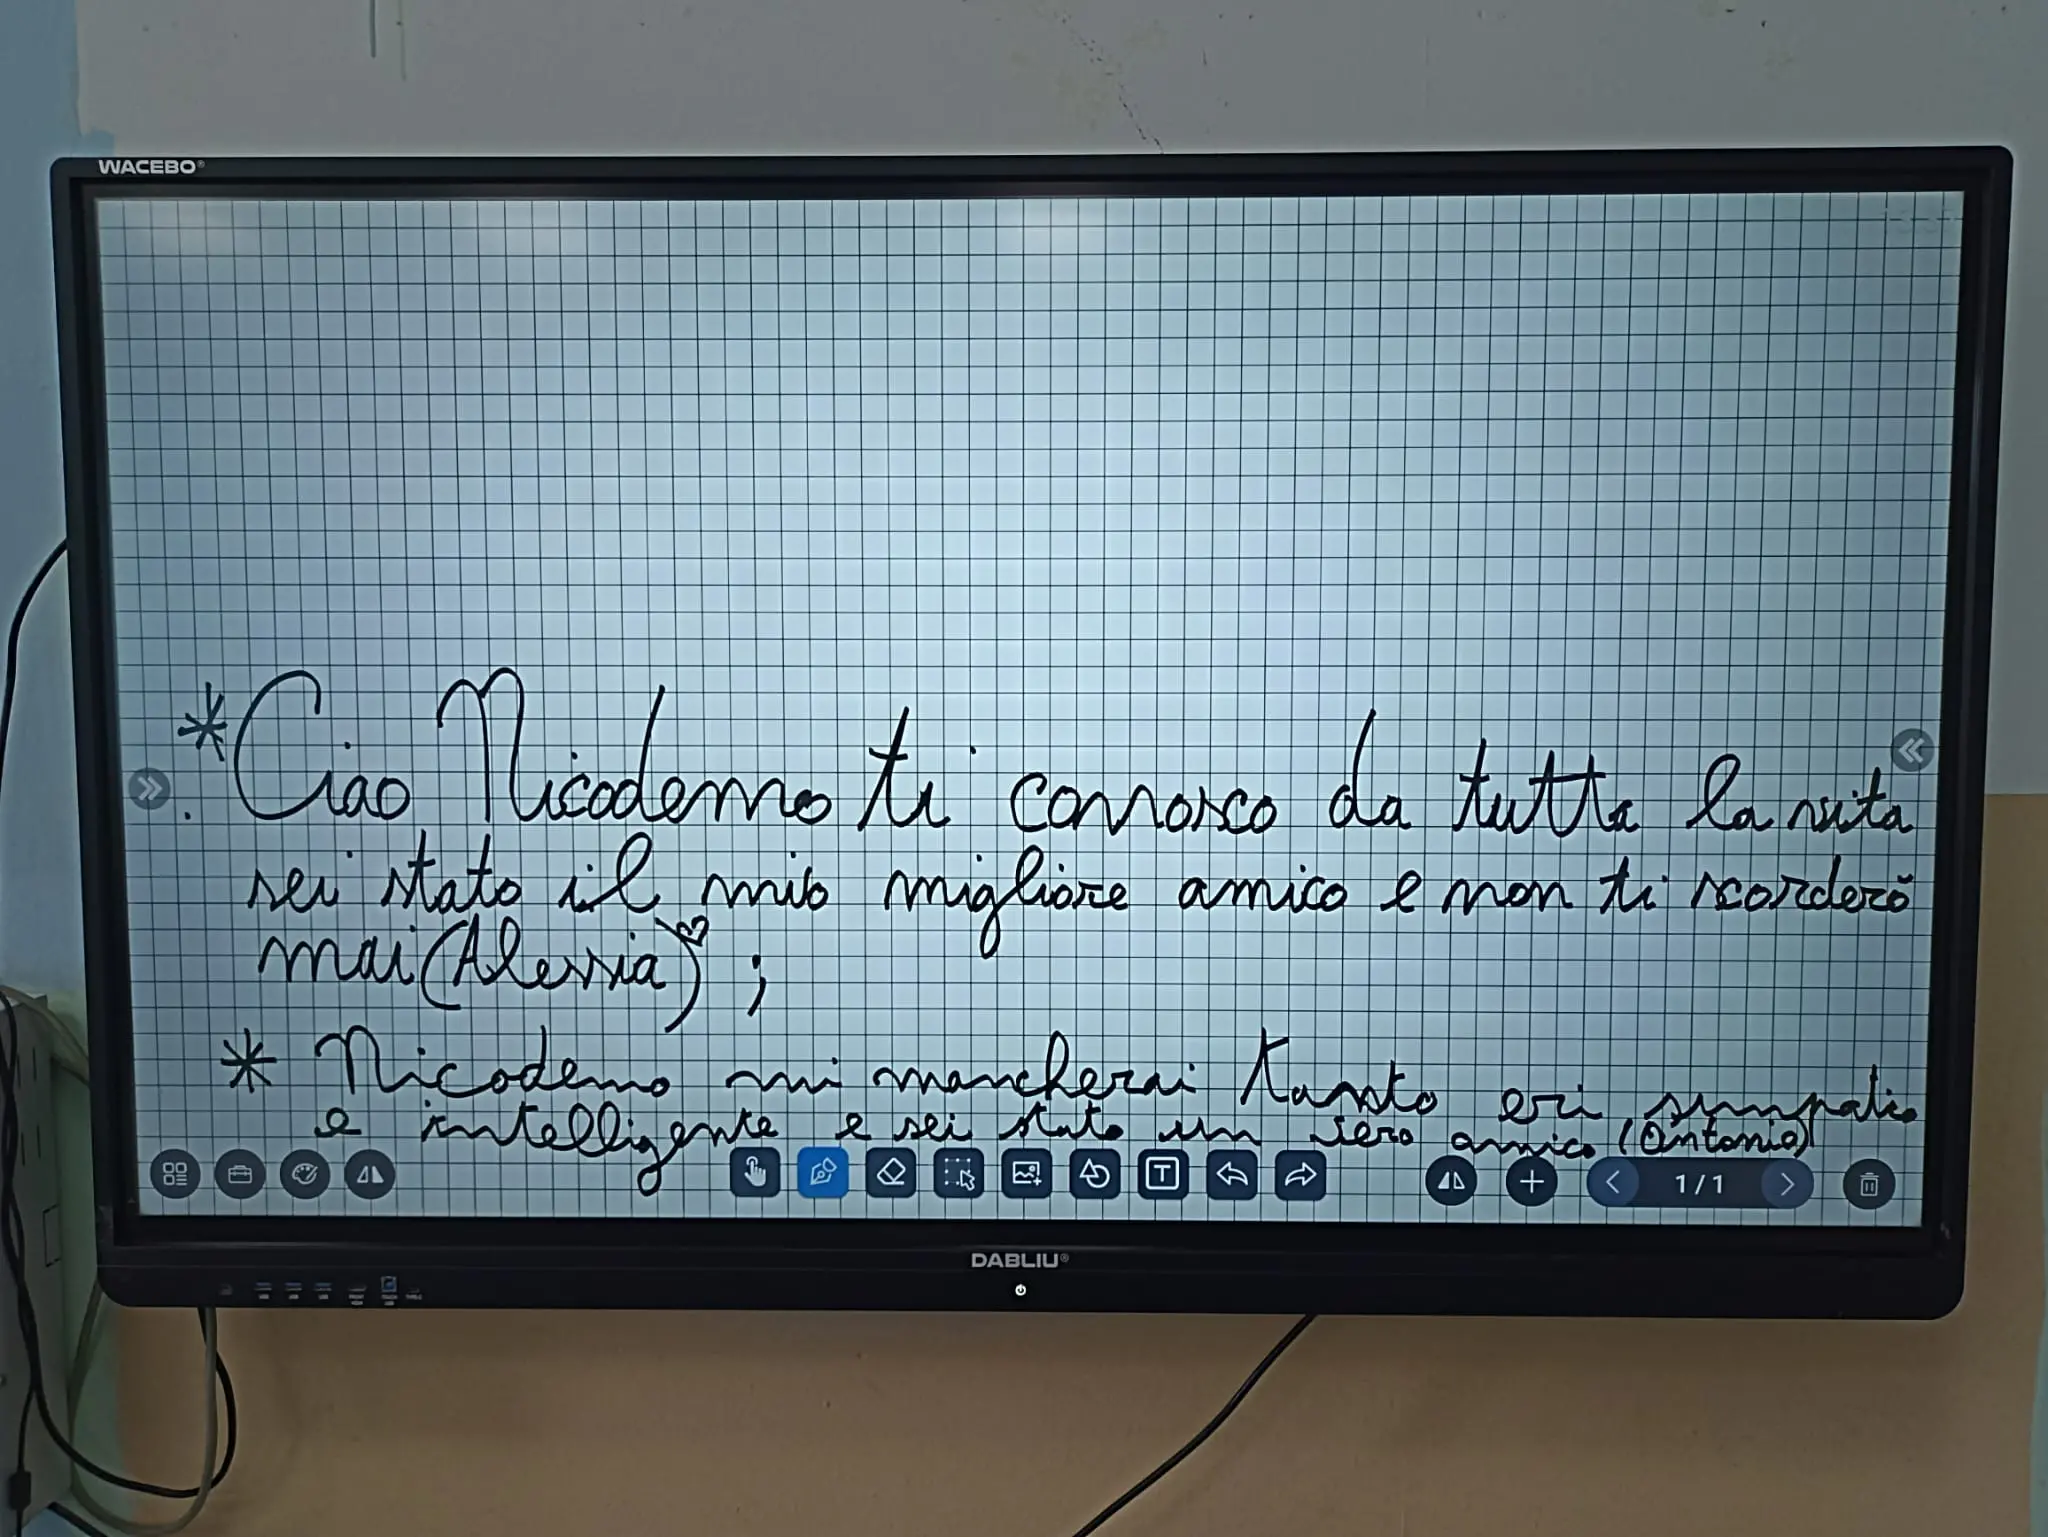 WACEBO®
* Ciao Nicodemo ti conosco da tutta la vita
sei stato il mio migliore amico e non ti scorderò
mai (Alessia) ;
* Nicodemo mi mancherai tanto eri simpatico
e intelligente e sei stato un vero amico (Antonio)
T
1/1
DABLIU®